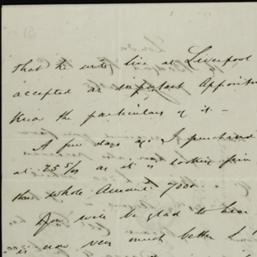 that he will live at Liverpool
accepted an important Appointm
Know the particulars of it. —
A few days ago I purchased
at 25 5/8 as it is looking firm
the whole Amount
You will be glad to hear
is now very much better